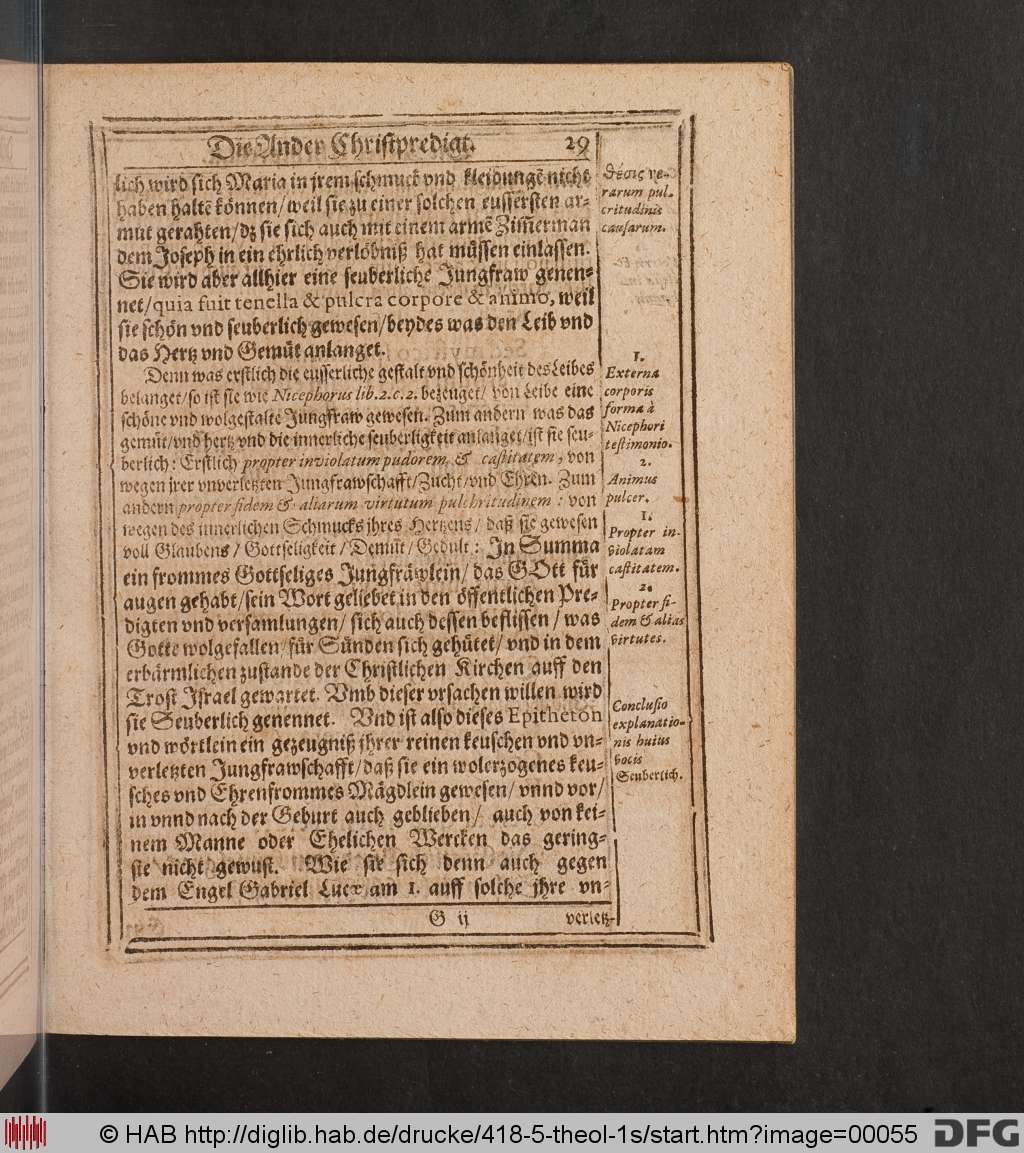 Die Ander Christpredigt. 29
lich wird sich Maria in jrem schmuck vnd kleidungē nicht
haben haltē können/ weil sie zu einer solchen eussersten ar-
mut gerahten/ dz sie sich auch mit einem armē Zim̄erman
dem Joseph in ein ehrlich verlöbniß hat müssen einlassen.
Sie wird aber allhier eine seuberliche Jungfraw genen-
net/ quia fuit tenella & pulcra corpore & animo, weil
sie schön vnd seuberlich gewesen/ beydes was den Leib vnd
das Hertz vnd Gemüt anlanget.
Denn was erstlich die eusserliche gestalt vnd schönheit des Leibes
belanget/ so ist sie wie Nicephorus lib. 2. c. 2. bezeuget/ von Leibe eine
schöne vnd wolgestalte Jungfraw gewesen. Zum andern was das
gemüt/ vnd hertz vnd die innerliche seuberligkeit anlanget/ ist sie seu-
berlich: Erstlich propter inviolatum pudorem, & castitatem, von
wegen jrer vnverletzten Jungfrawschafft/ Zucht/ vnd Ehren. Zum
andern propter fidem & aliarum virtutum pulchritudinem: von
wegen des innerlichen Schmucks jhres Hertzens/ daß sie gewesen
voll Glaubens/ Gottseligkeit/ Demüt/ Gedult: In Summa
ein frommes Gottseliges Jungfräwlein/ das GOtt für
augen gehabt/ sein Wort geliebet in den öffentlichen Pre-
digten vnd versamlungen/ sich auch dessen beflissen/ was
Gotte wolgefallen/ für Sünden sich gehütet/ vnd in dem
erbärmlichen zustande der Christlichen Kirchen auff den
Trost Israel gewartet. Vmb dieser vrsachen willen wird
sie Seuberlich genennet. Vnd ist also dieses Epitheton
vnd wörtlein ein gezeugniß jhrer reinen keuschen vnd vn-
verletzten Jungfrawschafft/ daß sie ein wolerzogenes keu-
sches vnd Ehrenfrommes Mägdlein gewesen/ vnnd vor/
in vnnd nach der Geburt auch geblieben/ auch von kei-
nem Manne oder Ehelichen Wercken das gering-
ste nicht gewust. Wie sie sich denn auch gegen
dem Engel Gabriel Lucæ am 1. auff solche jhre vn-
G ij verletz-
θέσις ve-
rarum pul-
critudinis
causarum.
1.
Externa
corporis
forma à
Nicephori
testimonio.
2.
Animus
pulcer.
1.
Propter in-
violatam
castitatem.
2.
Propter fi-
dem & alias
virtutes.
Conclusio
explanatio-
nis huius
vocis
Seuberlich.
© HAB http://diglib.hab.de/drucke/418-5-theol-1s/start.htm?image=00055
DFG